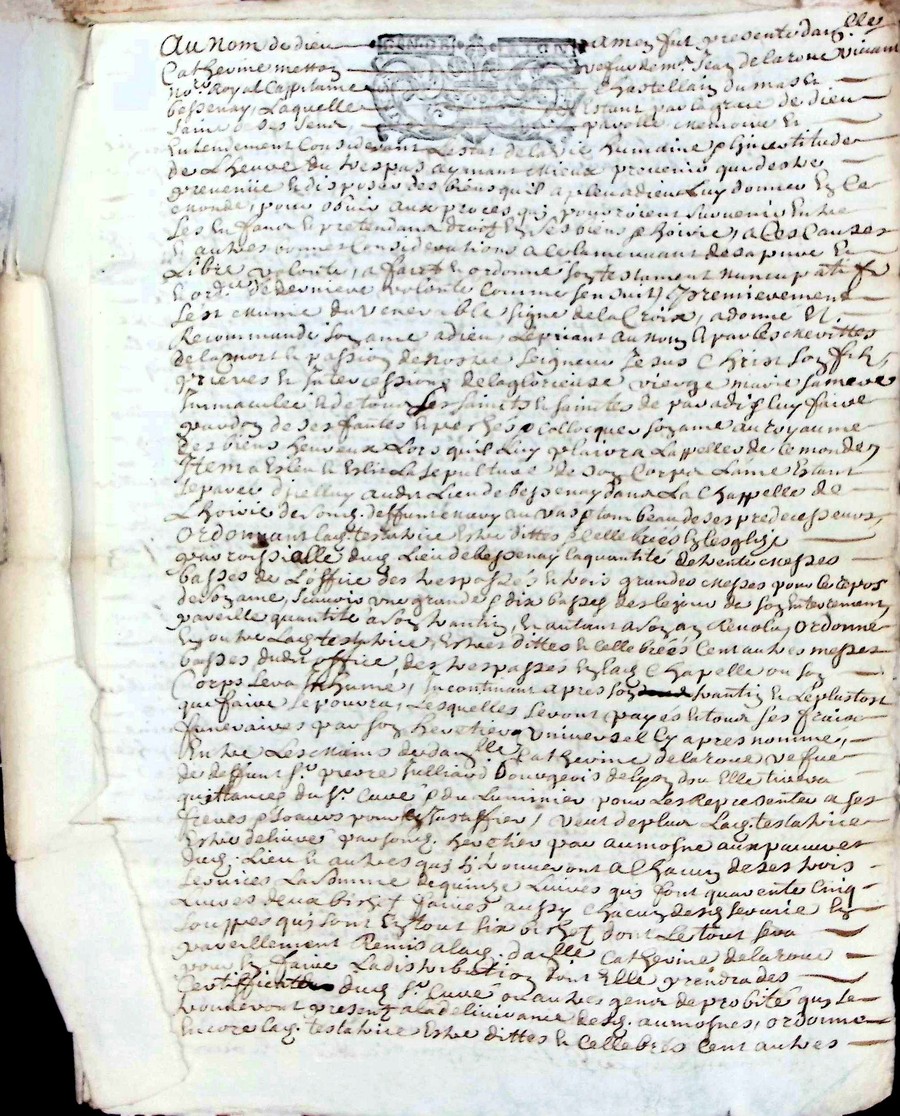 Au nom de dieu amen fut presente dam.lle
Catherine metton vefve de m.e Jean delaroue vivant
no.re Royal Cappitaine Chastellain du mas &
bessenay, Laquelle estant par la grace de dieu
saine de ses sens, parolle memoire et
Entendement Considerant Lestat de la vie humaine & Lincertitude
de Lheure du trespas aymant mieux prevenir que destre
prevenue et disposer des biens quil a pleu a dieu Luy donner En Ce
monde, pour obvier aux proces qui pourroient survenir Entre
Les Enfans et pretendans droit En ses biens & hoirie, a Ces Causes
et autres bonnes Considerations a Ce La mouvant de sa pure et
Libre volonté, a fait et ordonné son testament nuncupatif
et ord.ce de derniere volonté Comme sensuit, premierement
sest munie du venerable signe de la Croix, a donné et
Recommandé son ame a dieu, Le priant au nom et par les merittes
de la mort et passion de nostre seigneur Jesus Christ son fils,
prieres et Intercessions de la glorieuse vierge marie sa mere
Immaculée et de tous Les saincts et sainctes de paradis Luy faire
pardon de ses fautes et pechés & Collocquer son ame au royaume
des biens heureux Lors quil Luy plaira Lappeller de ce monde,
Item a Esleu et Eslit La sepulture de son Corps Lame Estant
separée diceluy audit Lieu de bessenay dans La Chappelle de
Lhoirie de son. deffunt mary au vas & tombeau de ses predecesseurs,
ordonnant Lad. testatrice Estre dittes & Cellebrées En Lesglise
parroissialle dud. Lieu de bessenay la quantité de trente messes
basses de Loffice des trespassés et trois grandes messes pour le repos
de son ame, scavoir une grande & dix basses des le jour de son Enterrement,
pareille quantité a son trantin, et autant a son an Revolu, ordonne
En outre Lad. testatrice, Estre dittes et Cellebrées Cent autres messes
basses dudit office des trespassés En Lad. Chapelle ou son
Corps sera Inhumé, Incontinant apres son trantin et Le plustost
que faire se pourra, Lesquelles seront payés et tous ses fraix
funeraires par son heretier universel Cy apres nommé,
Entre Les mains de dam.lle Catherine delaroue veffve
de deffunt s.r pierre Julliard bourgeois de Lyon dou Elle tirera
quittances du s.r Curé & du Luminier pour Les Representer a ses
freres & soeurs pour Les Justiffier, veut de plus Lad. testatrice
Estre delivré par sond. heretier par aumosne aux pauvres
dud. Lieu et autres qui sy trouveront a Chacun de ses trois
services La somme de quinze Livres qui font quarente Cinq
Livres deux bichet faicts aussy Chacun desd. service En
souppes qui sont En tout six bichet dont Le tout sera
pareillement Remis a lad. d.alle Catherine delaroue
pour En faire La distribution dont Elle prendra des
Certifficatts dud. s.r Curé ou autres gens de probité qui se
trouveront present a la delivrance desd. aumosnes, ordonne
Encore Lad. testatrice Estre dittes et Cellebrés Cent autres